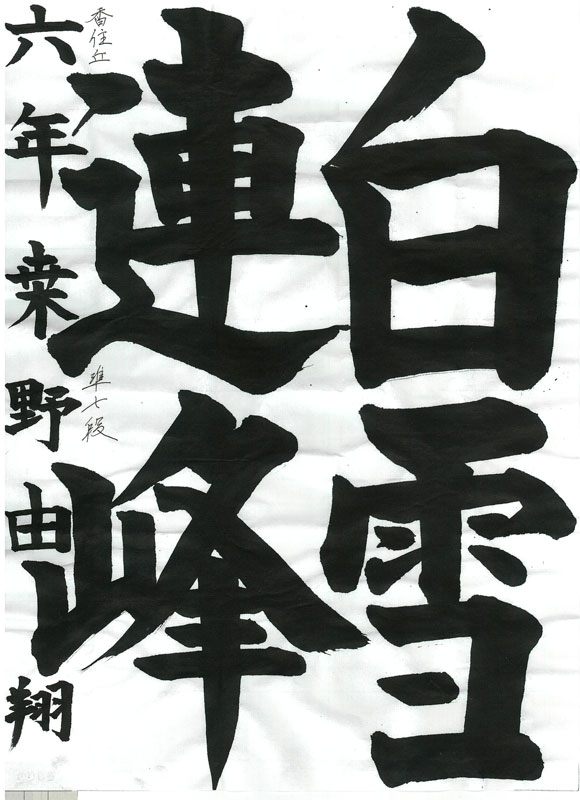 白雪
連峰
香住丘
準七段
六年桒野由翔